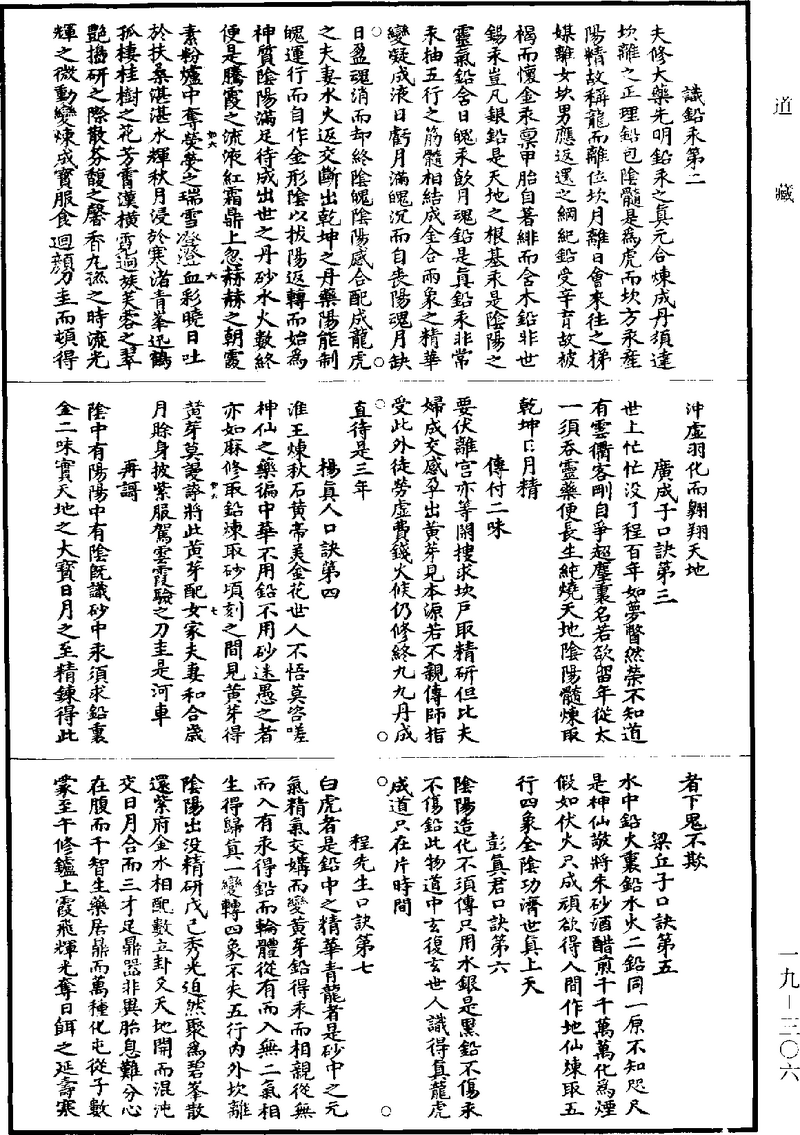 道藏
識鉛汞第二
夫修大藥先明鉛汞之真元合煉成丹須達
坎離之正理鉛包陰髓是為虎而坎方汞産
陽精故稱龍而離位坎月離日會來往之梯
媒離女坎男應返還之綱紀鉛受辛育故被
褐而懷金汞稟甲胎自著緋而含木鉛非世
錫汞豈凡銀鉛是天地之根基汞是陰陽之
靈氣鉛含日魄汞飲月魂鉛是真鉛汞非常
汞抽五行之筋髓相結成金合兩象之精華
變凝成液日虧月滿魄沉而自喪陽魂月缺
日盈魂消而却終陰魄陰陽感合配成龍虎
之夫妻水火返交斷出乾坤之丹藥陽能制
魄運行而自作金形陰以拔陽返轉而始為
神質陰陽滿足待成出世之丹砂水火數終
便是騰霞之流液紅霜鼎上忽赫赫之朝霞
素粉爐中奪熒熒之瑞雪澄澄血彩曉日吐
於扶桑湛湛水輝秋月浸於寒渚青峯迅鶴
孤棲桂樹之花芳霄漢橫霓迥簇芙蓉之翠
艷搗研之際散芬馥之馨香九㳂之時流光
輝之微動變煉成寶服食迴顏刀圭而頓得
冲虛羽化而翺翔天地
廣成子口訣第三
世上忙忙没了程百年如夢瞥然榮不知道
有雲衢客剛自爭超塵裏名若欲留年從太
一須吞靈藥便長生純燒天地陰陽髓煉取
乾坤日月精
傳付二味
要伏離宮亦等閑摟求坎戶取精研但比夫
婦成交感孕出黄芽見本源若不親傳師指
受此外徒勞虛費錢火候仍修終九九丹成
直待是三年
楊真人口訣第四
淮王煉秋石黄帝美金花世人不悟莫咨嗟
神仙之藥徧中華不用鉛不用砂迷愚之者
亦如麻修取鉛煉取砂頃刻之間見黄芽得
黄芽莫謾誇將此黄芽配女家夫妻和合歲
月賒身披紫服駕雲霞驗之刀圭是河車
再謌
陰中有陽陽中有陰既識砂中汞須求鉛裏
金二味實天地之大寶日月之至精鍊得此
者下鬼不欺
梁丘子口訣第五
水中鉛火裏鉛水火二鉛同一原不知咫尺
是神仙敬將朱砂酒醋煎千千萬萬化為煙
假如伏火只成頑欲得人間作地仙煉取五
行四象全陰功濟世真上天
彭真君口訣第六
陰陽造化不須傳只用水銀是黑鉛不傷汞
不傷鉛此物道中玄復玄世人識得真龍虎
成道只在片時間
程先生口訣第七
白虎者是鉛中之精華青龍者是砂中之元
氣精氣交媾而變黄芽鉛得汞而相親從無
而入有汞得鉛而輪體從有而入無二氣相
生得歸真一變轉四象不失五行内外坎離
陰陽出没精研戊己秀光迫然聚為碧峯散
還紫府金水相配數立卦爻天地開而混沌
交日月合而三才足鼎器非異胎息難分心
在腹而千智生藥居鼎而萬種化屯從子數
蒙至午修鑪上霞飛輝光奪日餌之延壽寒
一九－三〇六